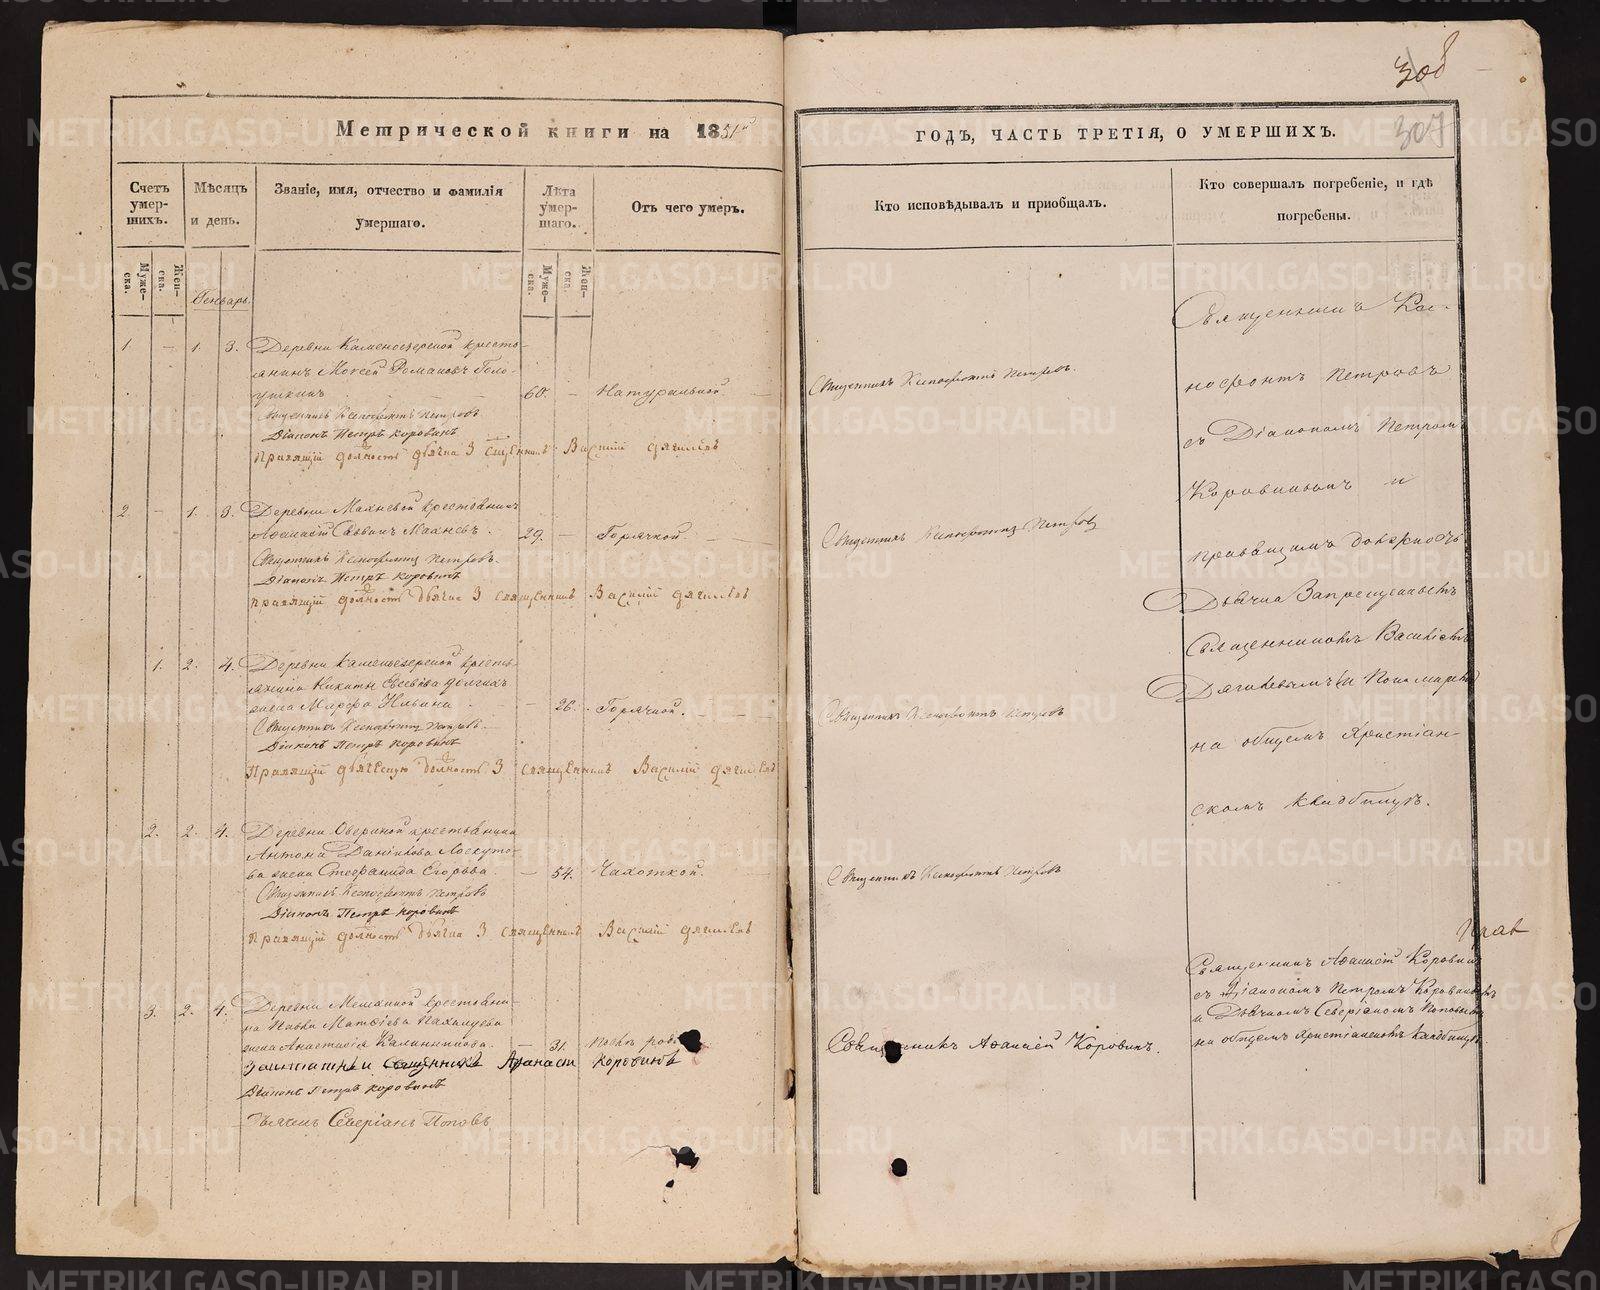 308
307
Метрической книги на 1851й
годъ, часть третія, о умершихъ.
Счетъ умер-шихъ.
Мѣсяцъ и день.
Званіе, имя, отчество и фамилія умершаго.
Лѣта умер-шаго.
Отъ чего умеръ.
Кто исповѣдывалъ и приобщалъ.
Кто совершалъ погребеніе, и гдѣ погребены.
Муже-ска.
Жен-ска.
Муже-ска.
Жен-ска.
Генварь.
1 — 1. 3. Деревни Каменоозерской кресть-
янинъ Моѵсей Романовъ Голо-
ушкинъ 60. — Натуральной
Священникъ Ксенофонтъ Петровъ.
Священникъ Ксенофонтъ Петровъ
Діаконъ Петръ Коровинъ
Правящій должность дьячка З священникъ Василій Дягилевъ
2 — 1. 3. Деревни Махневой крестьянинъ
Аѳанасій Саввинъ Махневъ. 29. — Горячкой.
Священникъ Ксенофонтъ Петровъ
Священникъ Ксенофонтъ Петровъ.
Діаконъ Петръ Коровинъ
Правящій должность дьячка З священникъ Василій Дягилевъ
1. 2. 4. Деревни Каменоозерской кресть-
янина Никиты Евсевіева Долгихъ
жена Марѳа Ильина — 26. Горячкой.
Священникъ Ксенофонтъ Петровъ
Священникъ Ксенофонтъ Петровъ
Діаконъ Петръ Коровинъ
Правящій дьяческую должность З священникъ Василій Дягилевъ
2. 2. 4. Деревни Овериной крестьянина
Антона Данилова Лоскуто-
ва жена Стефанида Егорова. — 54. Чахоткой.
Священникъ Ксенофонтъ Петровъ
Священникъ Ксенофонтъ Петровъ
Діаконъ Петръ Коровинъ
Правящій должность дьячка З священникъ Василій Дягилевъ
3. 2. 4. Деревни крестьяни-
на Павла Матѳіева
жена Анастасія Калинникова. — 31. Послѣ
Священникъ Аѳанасій Коровинъ.
священникъ Афанасіи Коровинъ
Діаконъ Петръ Коровинъ
Дьячекъ Северіанъ Поповъ
Священникъ Ксе-
нофонтъ Петровъ
съ Діакономъ Петромъ
Коровинымъ и
правящимъ должность
Дьячка Запрещеннымъ
Священникомъ Василіемъ
Дягилевымъ и Пономаремъ
на общемъ Христіан-
скомъ кладбищѣ.
Прав
Священникъ Аѳанасій Коровинъ
съ Діакономъ Петромъ Коровинымъ
и Дьячкомъ Северіаномъ Поповымъ
на общемъ Христіанскомъ кладбищѣ.
METRIKI.GASO-URAL.RU